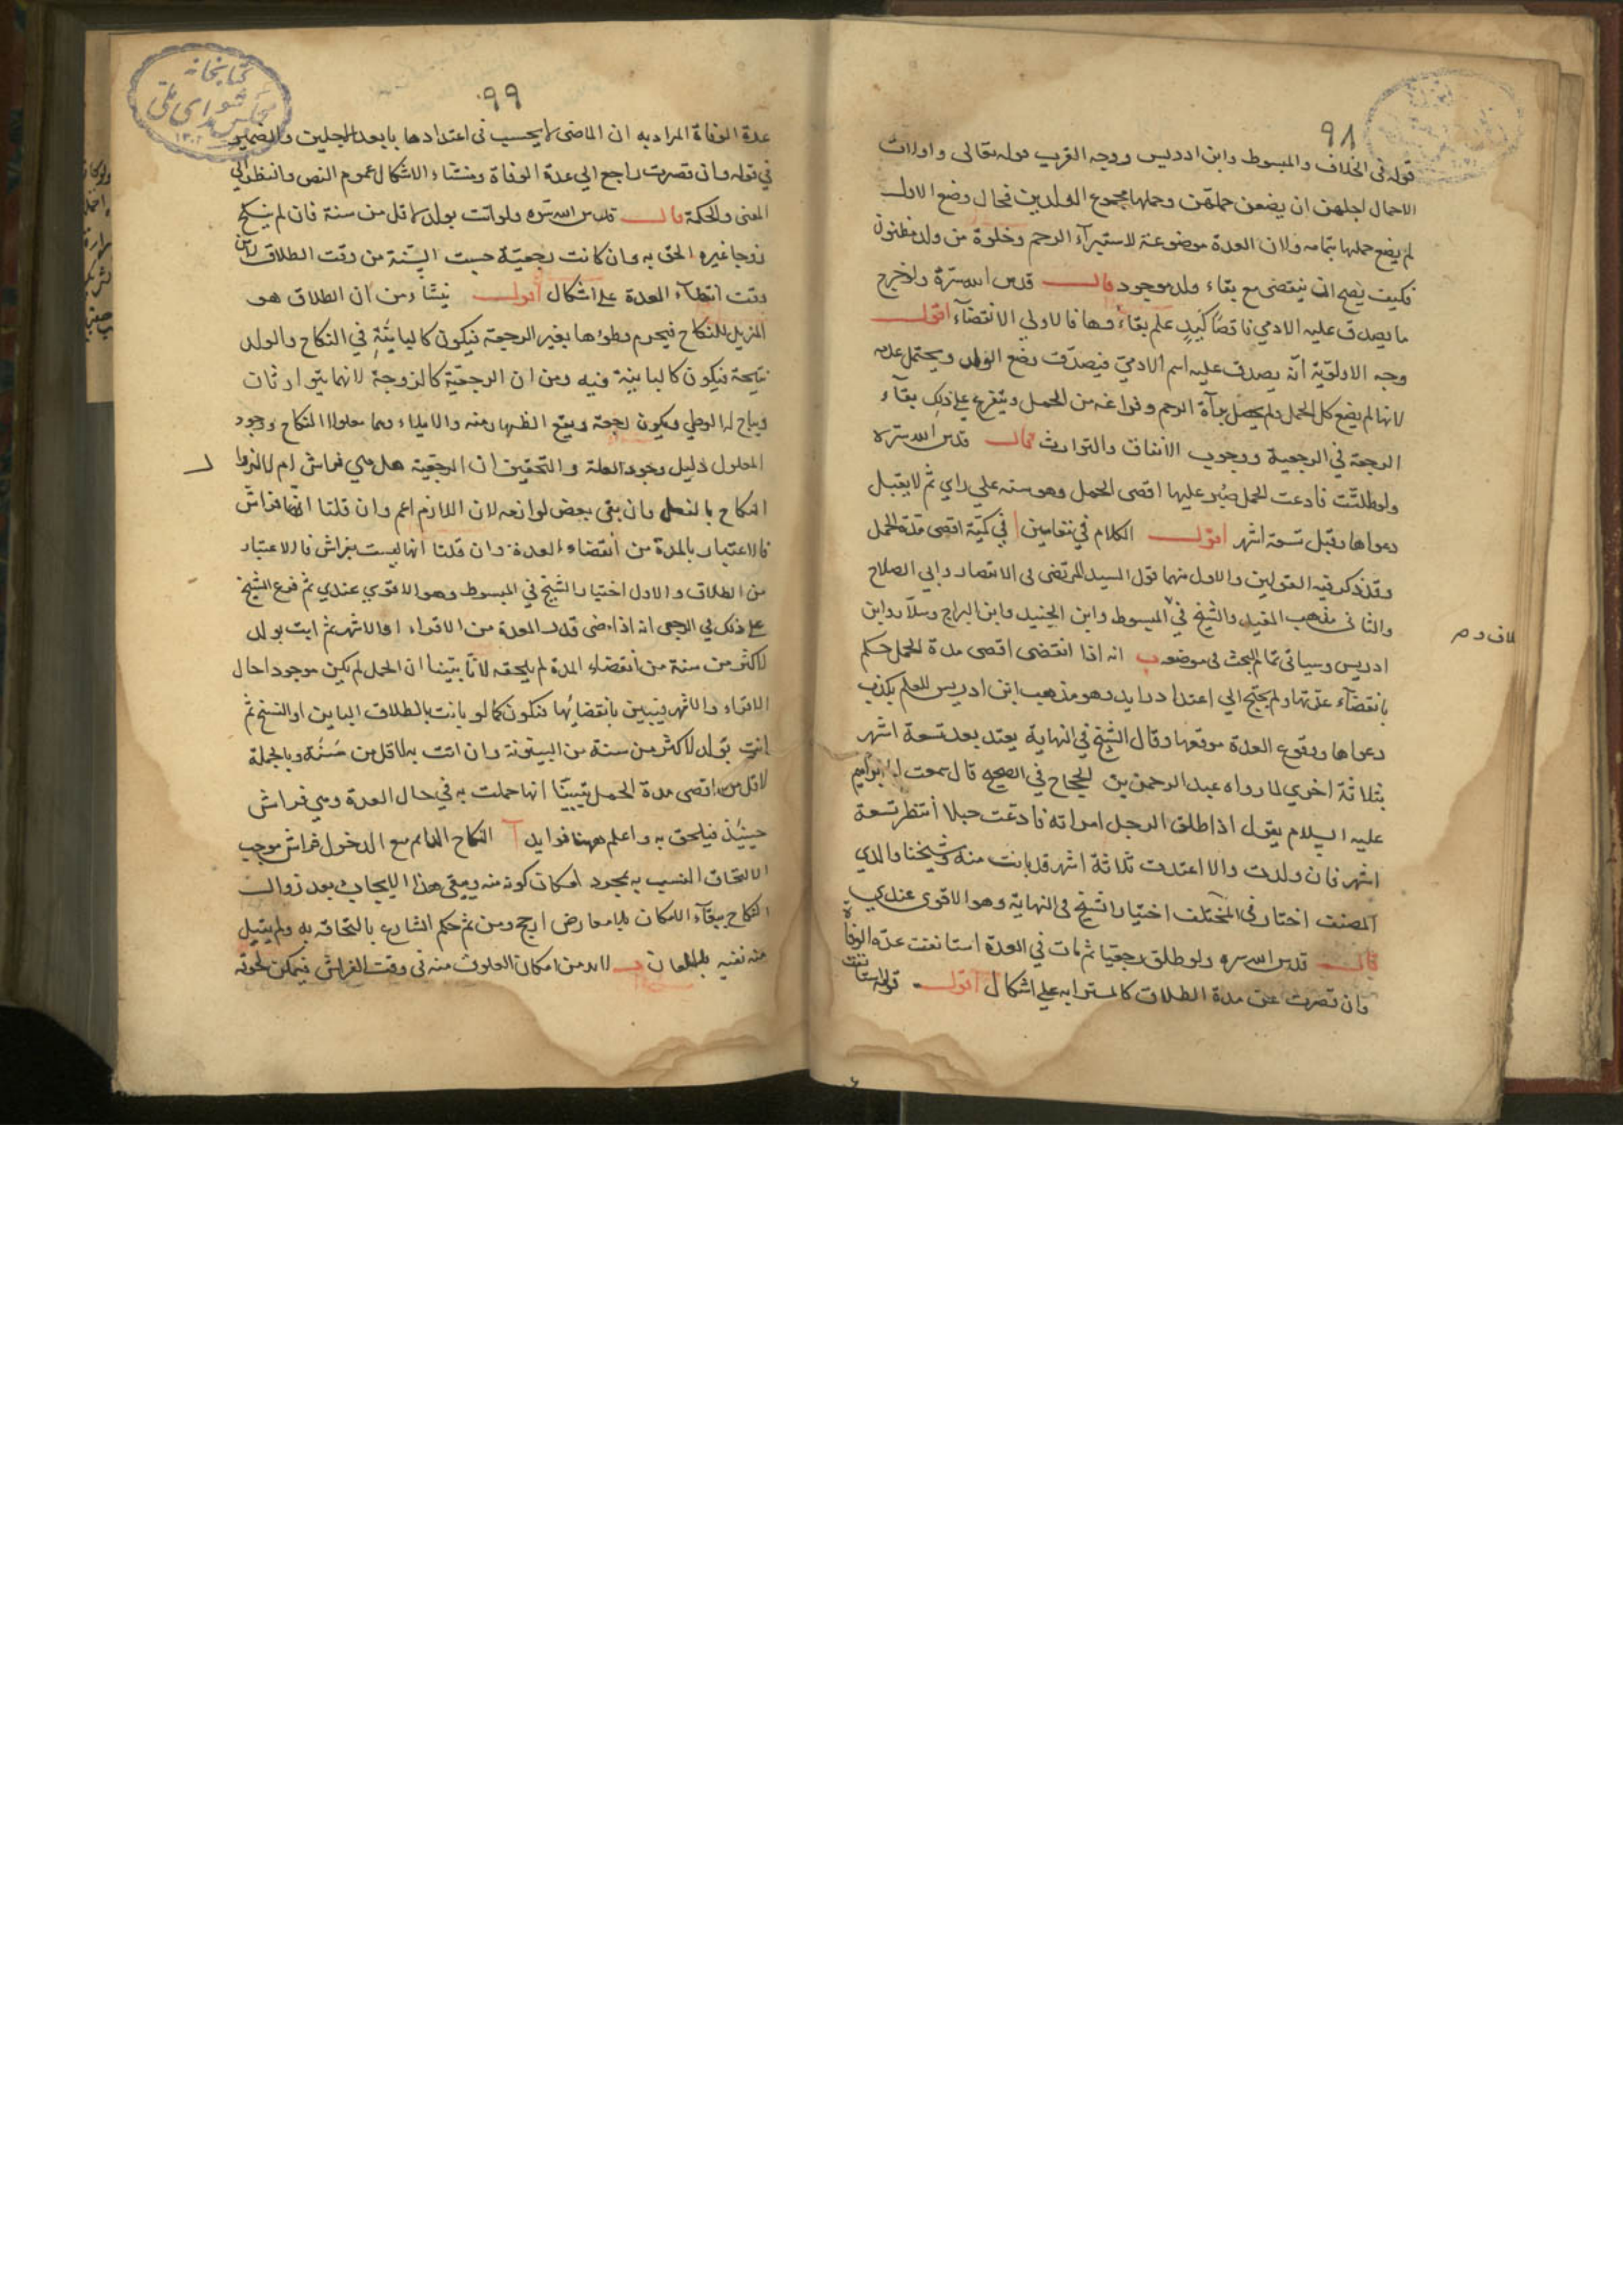 ٩٨
قوله في الخلاف والمبسوط وابن ادريس ووجه القرب قوله تعالى واولات
الاحمال اجلهن ان يضعن حملهن وحملها مجموع الولدين فحال وضع الاول
لم يضع حملها بتمامه ولان العدة موضوعة لاستبرآء الرحم وخلوه من ولد مظنون
فكيف يصح ان ينقضى مع بقاء ولد موجود قال قدس الله سره ولو خرج
ما يصدق عليه الادمي ناقصا كيد علم بقاءوها فالاولي الانقضآء اقول
وجه الاولوية انه يصدق عليه اسم الادمي فيصدق وضع الولد ويحتمل عدمه
لانها لم يضع كل الحمل ولم يحصل برآة الرحم وفراغه من الحمل ويتفرع علي ذلك بقآء
الرجعة في الرجعية ووجوب الانفاق والتوارث قال قدس الله سره
ولو طلقت فادعت الحمل صبر عليها اقصى الحمل وهو سنة علي راي ثم لا يقبل
دعواها وقيل تسعة اشهر اقول الكلام في مقامين ا في كمية اقصى مدة الحمل
وقد ذكر فيه القولين والاول منهما قول السيد المرتضى في الانتصار وابي الصلاح
والثانى مذهب المفيد والشيخ في المبسوط وابن الجنيد وابن البراج وسلار وابن
ادريس وسياتى تمام البحث في موضعه ب انه اذا انقضى اقصى مدة الحمل حكم
بانقضآء عدتها ولم يحتج الي اعتداد زايد وهو مذهب ابن ادريس للعلم بكذب
دعواها ووقوع العدة موقعها وقال الشيخ في النهاية يعتد بعد تسعة اشهر
بثلاثة اخري لما رواه عبد الرحمن بن الحجاج في الصحيح قال سمعت ابا ابراهيم
عليه السلام يقول اذا طلق الرجل امراته فادعت حبلا انتظر تسعة
اشهر فان ولدت والا اعتدت ثلاثة اشهر قد بانت منه وشيخنا والدي
المصنف اختار في المختلف اختيار الشيخ في النهاية وهو الاقوى عندي
قال قدس الله سره ولو طلق رجعيا ثم مات في العدة استانفت عدة الوفاة
وان قصرت عن مدة الطلاق كالمسترابة علي اشكال اقول قوله استانفت
٩٩
عدة الوفاة المراد به ان الماضى لا يحسب في اعتدادها بابعد الاجلين والضمير
في قوله وان قصرت راجع الي عدة الوفاة ومنشاء الاشكال عموم النص والنظر الي
المعنى والحكمة قال قدس الله سره ولو اتت بولد لاقل من سنة فان لم ينكح
زوجا غيره الحق به وان كانت رجعية حسبت السنة من وقت الطلاق لا من
وقت انقضآء العدة علي اشكال اقول ينشاء من ان الطلاق هو
المزيل للنكاح فيحرم وطوءها بغير الرجعة فيكون كالباينة في النكاح والولد
نتيجة فيكون كالباينة فيه ومن ان الرجعية كالزوجة لانهما يتوارثان
ويباح له الوطي ويكون رجعة ويقع الظهار منه والايلاء وهما معلولا النكاح ووجود
المعلول دليل وجود العلة والتحقيق ان الرجعية هل هي فراش ام لا لزوال
النكاح بالفعل وان بقى بعض لوازمه لان اللازم اعم وان قلنا انها فراش
فالاعتبار بالمدة من انقضاء العدة وان قلنا انها ليست بفراش فالاعتبار
من الطلاق والاول اختيار الشيخ في المبسوط وهو الاقوي عندي ثم فرع الشيخ
علي ذلك في الرجعي انه اذا مضى قدر العدة من الاقراء او الاشهر ثم اتت بولد
لاكثر من سنة من انقضاء المدة لم يلحقه لانا بتينا ان الحمل لم يكن موجودا حال
الاقراء والاشهر فيبين بانقضائها فتكون كما لو بانت بالطلاق الباين او الفسخ ثم
اتت بولد لاكثر من سنة من البينونة وان اتت به لاقل من سنة وبالجملة
لاقل من اقصى مدة الحمل تبينا انها حملت به في حال العدة وهي فراش
حينئذ فيلحق به واعلم ههنا فوايد آ النكاح الدايم مع الدخول فراش موجب
لالتحاق النسب به بمجرد امكان كونه منه ويبقى هذا الايجاب بعد زوال
النكاح ببقآء الامكان بلا معارض ارجح ومن ثم حكم الشارع بالتحاقه به ولم يقبل
منه نفيه باللعان ب لا بد من امكان العلوق منه في وقت الفراش فيمكن لحوقه
كتابخانه
مجلس شورای ملی